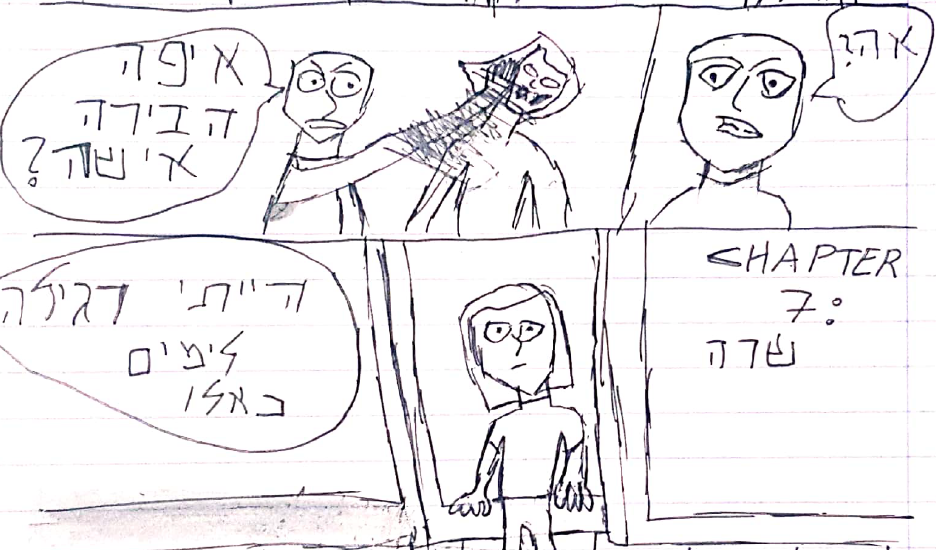 אה?
איפה
הבירה
אישה?
CHAPTER
7:
שרה
הייתי רגילה
לימים
כאלו